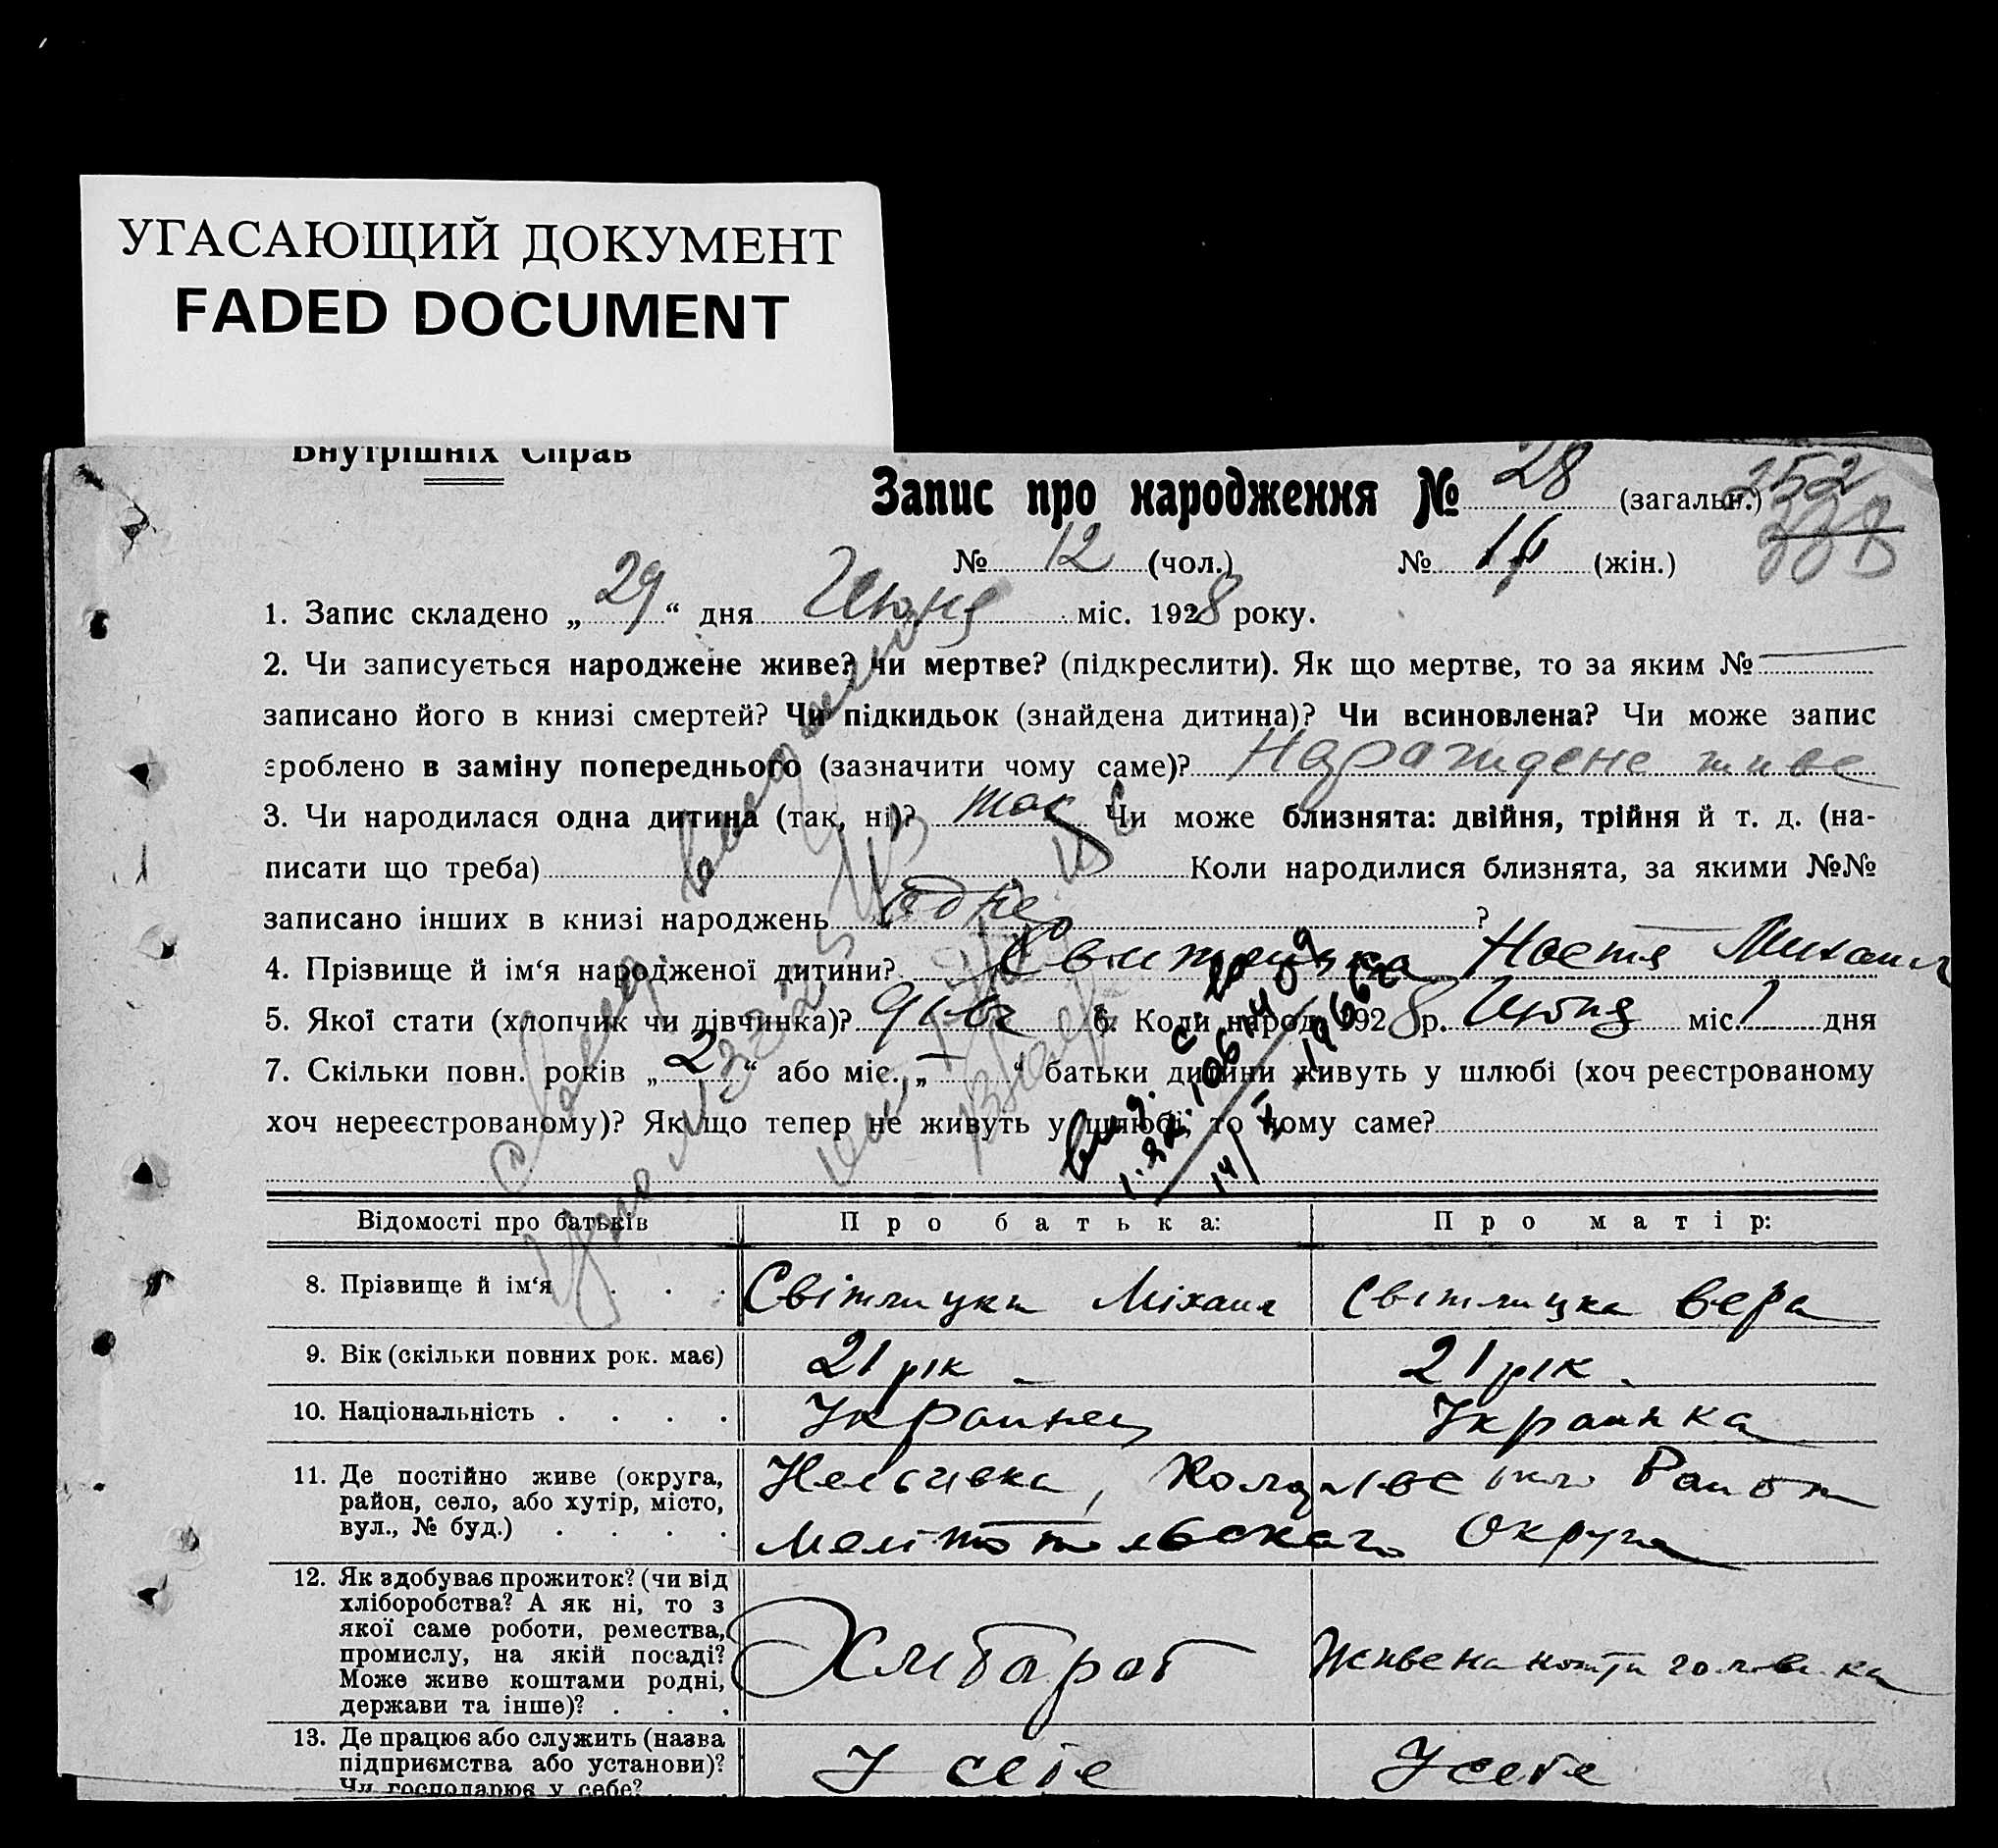 УГАСАЮЩИЙ ДОКУМЕНТ
FADED DOCUMENT
Внутрішніх Справ
Запис про народження № 28 (загальн.) 252
338
№ 12 (чол.) № 16 (жін.)
1. Запис складено „ 29 “ дня Июня міс. 1928 року.
2. Чи записується народжене живе? чи мертве? (підкреслити). Як що мертве, то за яким №
записано його в книзі смертей? Чи підкидьок (знайдена дитина)? Чи всиновлена? Чи може запис
зроблено в заміну попереднього (зазначити чому саме)? живе
3. Чи народилася одна дитина (так, ні)? так Чи може близнята: двійня, трійня й т. д. (на-
писати що треба) Коли народилися близнята, за якими №№
записано інших в книзі народжень ?
4. Прізвище й ім‘я народженої дитини? Настя Михаил
5. Якої стати (хлопчик чи дівчинка)? 6. Коли народ. 1928 р. Июня міс. 1 дня
7. Скільки повн. років „ 2 “ або міс. „ “ батьки дитини живуть у шлюбі (хоч реєстрованому
хоч нереєстрованому)? Як що тепер не живуть у шлюбі, то чому саме?
Відомості про батьків Про батька: Про матір:
8. Прізвище й ім‘я . . . Світлицки Міхаил Світлицка Вера
9. Вік (скільки повних рок. має) 21 рік 21 рік
10. Національність . . . . Украинец Украинка
11. Де постійно живе (округа,
район, село, або хутір, місто,
вул., № буд.) . . . .
Район
Мелитопольскаго Округа
12. Як здобуває прожиток? (чи від
хліборобства? А як ні, то з
якої саме роботи, ремества,
промислу, на якій посаді?
Може живе коштами родні,
держави та інше)? . . .
Хлибароб
13. Де працює або служить (назва
підприємства або установи)?
Чи господарює у себе?
У себе У себе